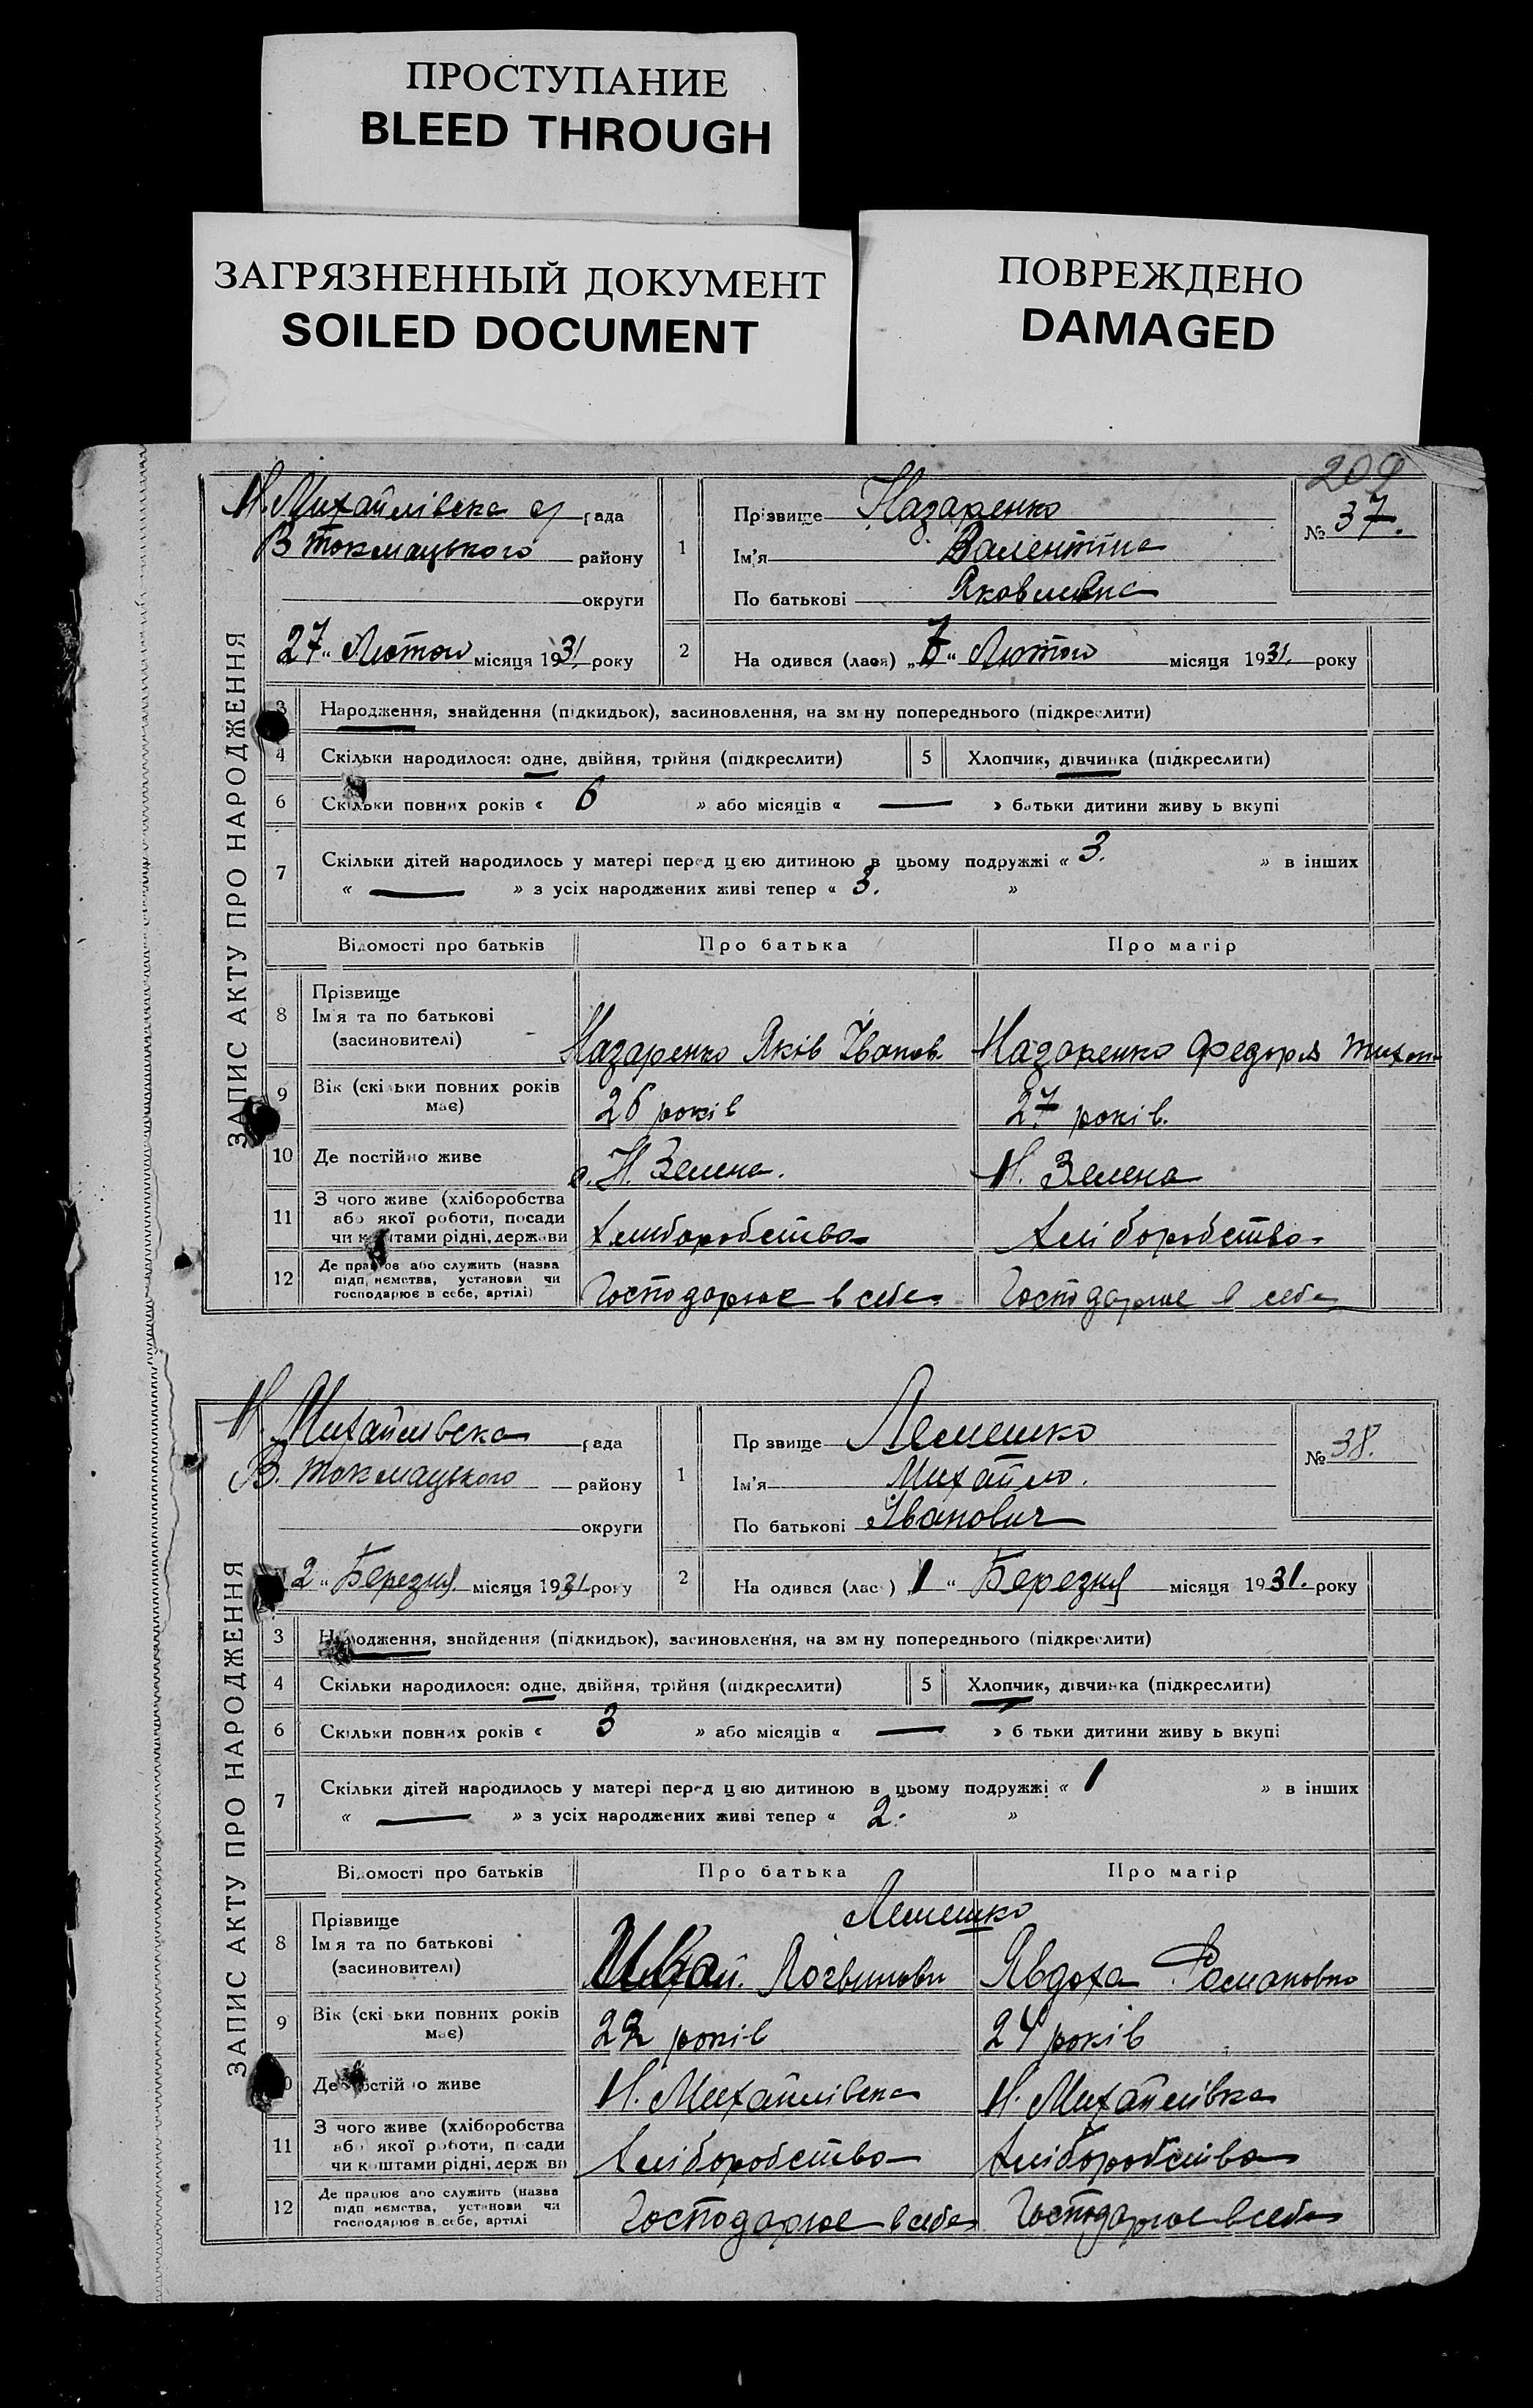 ПРОСТУПАНИЕ
BLEED THROUGH
ЗАГРЯЗНЕННЫЙ ДОКУМЕНТ
SOILED DOCUMENT
ПОВРЕЖДЕНО
DAMAGED
209
ЗАПИС АКТУ ПРО НАРОДЖЕННЯ
Н. Михайлівська рада
В Токмацького району
округи
27 „ Лютого місяця 1931 року
1
Прізвище Назаренко
Ім'я Валентина
По батькові Яковлевна
№ 37.
2
На одився (лася) „7“ Лютого місяця 1931. року
3 Народження, знайдення (підкидьок), засиновлення, на зм ну попереднього (підкреслити)
4 Скільки народилося: одне, двійня, трійня (підкреслити) 5 Хлопчик, дівчинка (підкреслити)
6 Скільки повних років « 6 » або місяців « — » батьки дитини живу ь вкупі
7 Скільки дітей народилось у матері перед цією дитиною в цьому подружжі « 3. » в інших
« — » з усіх народжених живі тепер « 3. »
Відомості про батьків Про батька Про матір
8 Прізвище
Ім'я та по батькові
(засиновителі)
Назаренко Яків Іванов. Назаренко Федора Тихон
9 Вік (скільки повних років
має)
26 років 27 років.
10 Де постійно живе с. Н. Зелена. Н. Зелена
11 З чого живе (хліборобства
або якої роботи, посади
чи коштами рідні, держави
Хліборобства Хліборобства
12 Де працює або служить (назва
підп иємства, установи чи
господарює в себе, артілі)
Господарює в себе Господарює в себе
ЗАПИС АКТУ ПРО НАРОДЖЕННЯ
Н. Михайлівська рада
В. Токмацького району
округи
2 “ Березня місяця 1931 року
1
Пр звище Лемешко
Ім'я Михайло.
По батькові Іванович
№ 38.
2
На одився (лас ) „1“ Березня місяця 1931. року
3 Народження, знайдення (підкидьок), засиновлення, на зм ну попереднього (підкреслити)
4 Скільки народилося: одне, двійня, трійня (підкреслити) 5 Хлопчик, дівчинка (підкреслити)
6 Скільки повних років « 3 » або місяців « — » б тьки дитини живу ь вкупі
7 Скільки дітей народилось у матері перед цією дитиною в цьому подружжі « 1 » в інших
« — » з усіх народжених живі тепер « 2. »
Відомості про батьків Про батька Про матір
Лемешко
8 Прізвище
Ім'я та по батькові
(засиновителі)
Логвинови Явдоха Романовна
9 Вік (скі ьки повних років
має)
22 років 24 років
10 Де постій о живе Н. Михайлівка Н. Михайлівка
11 З чого живе (хліборобства
або якої роботи, посади
чи коштами рідні, держ ви
Хліборобства Хліборобства
12 Де працює або служить (назва
підп иємства, установи чи
господарює в себе, артілі
Господарює в себе Господарює в себе